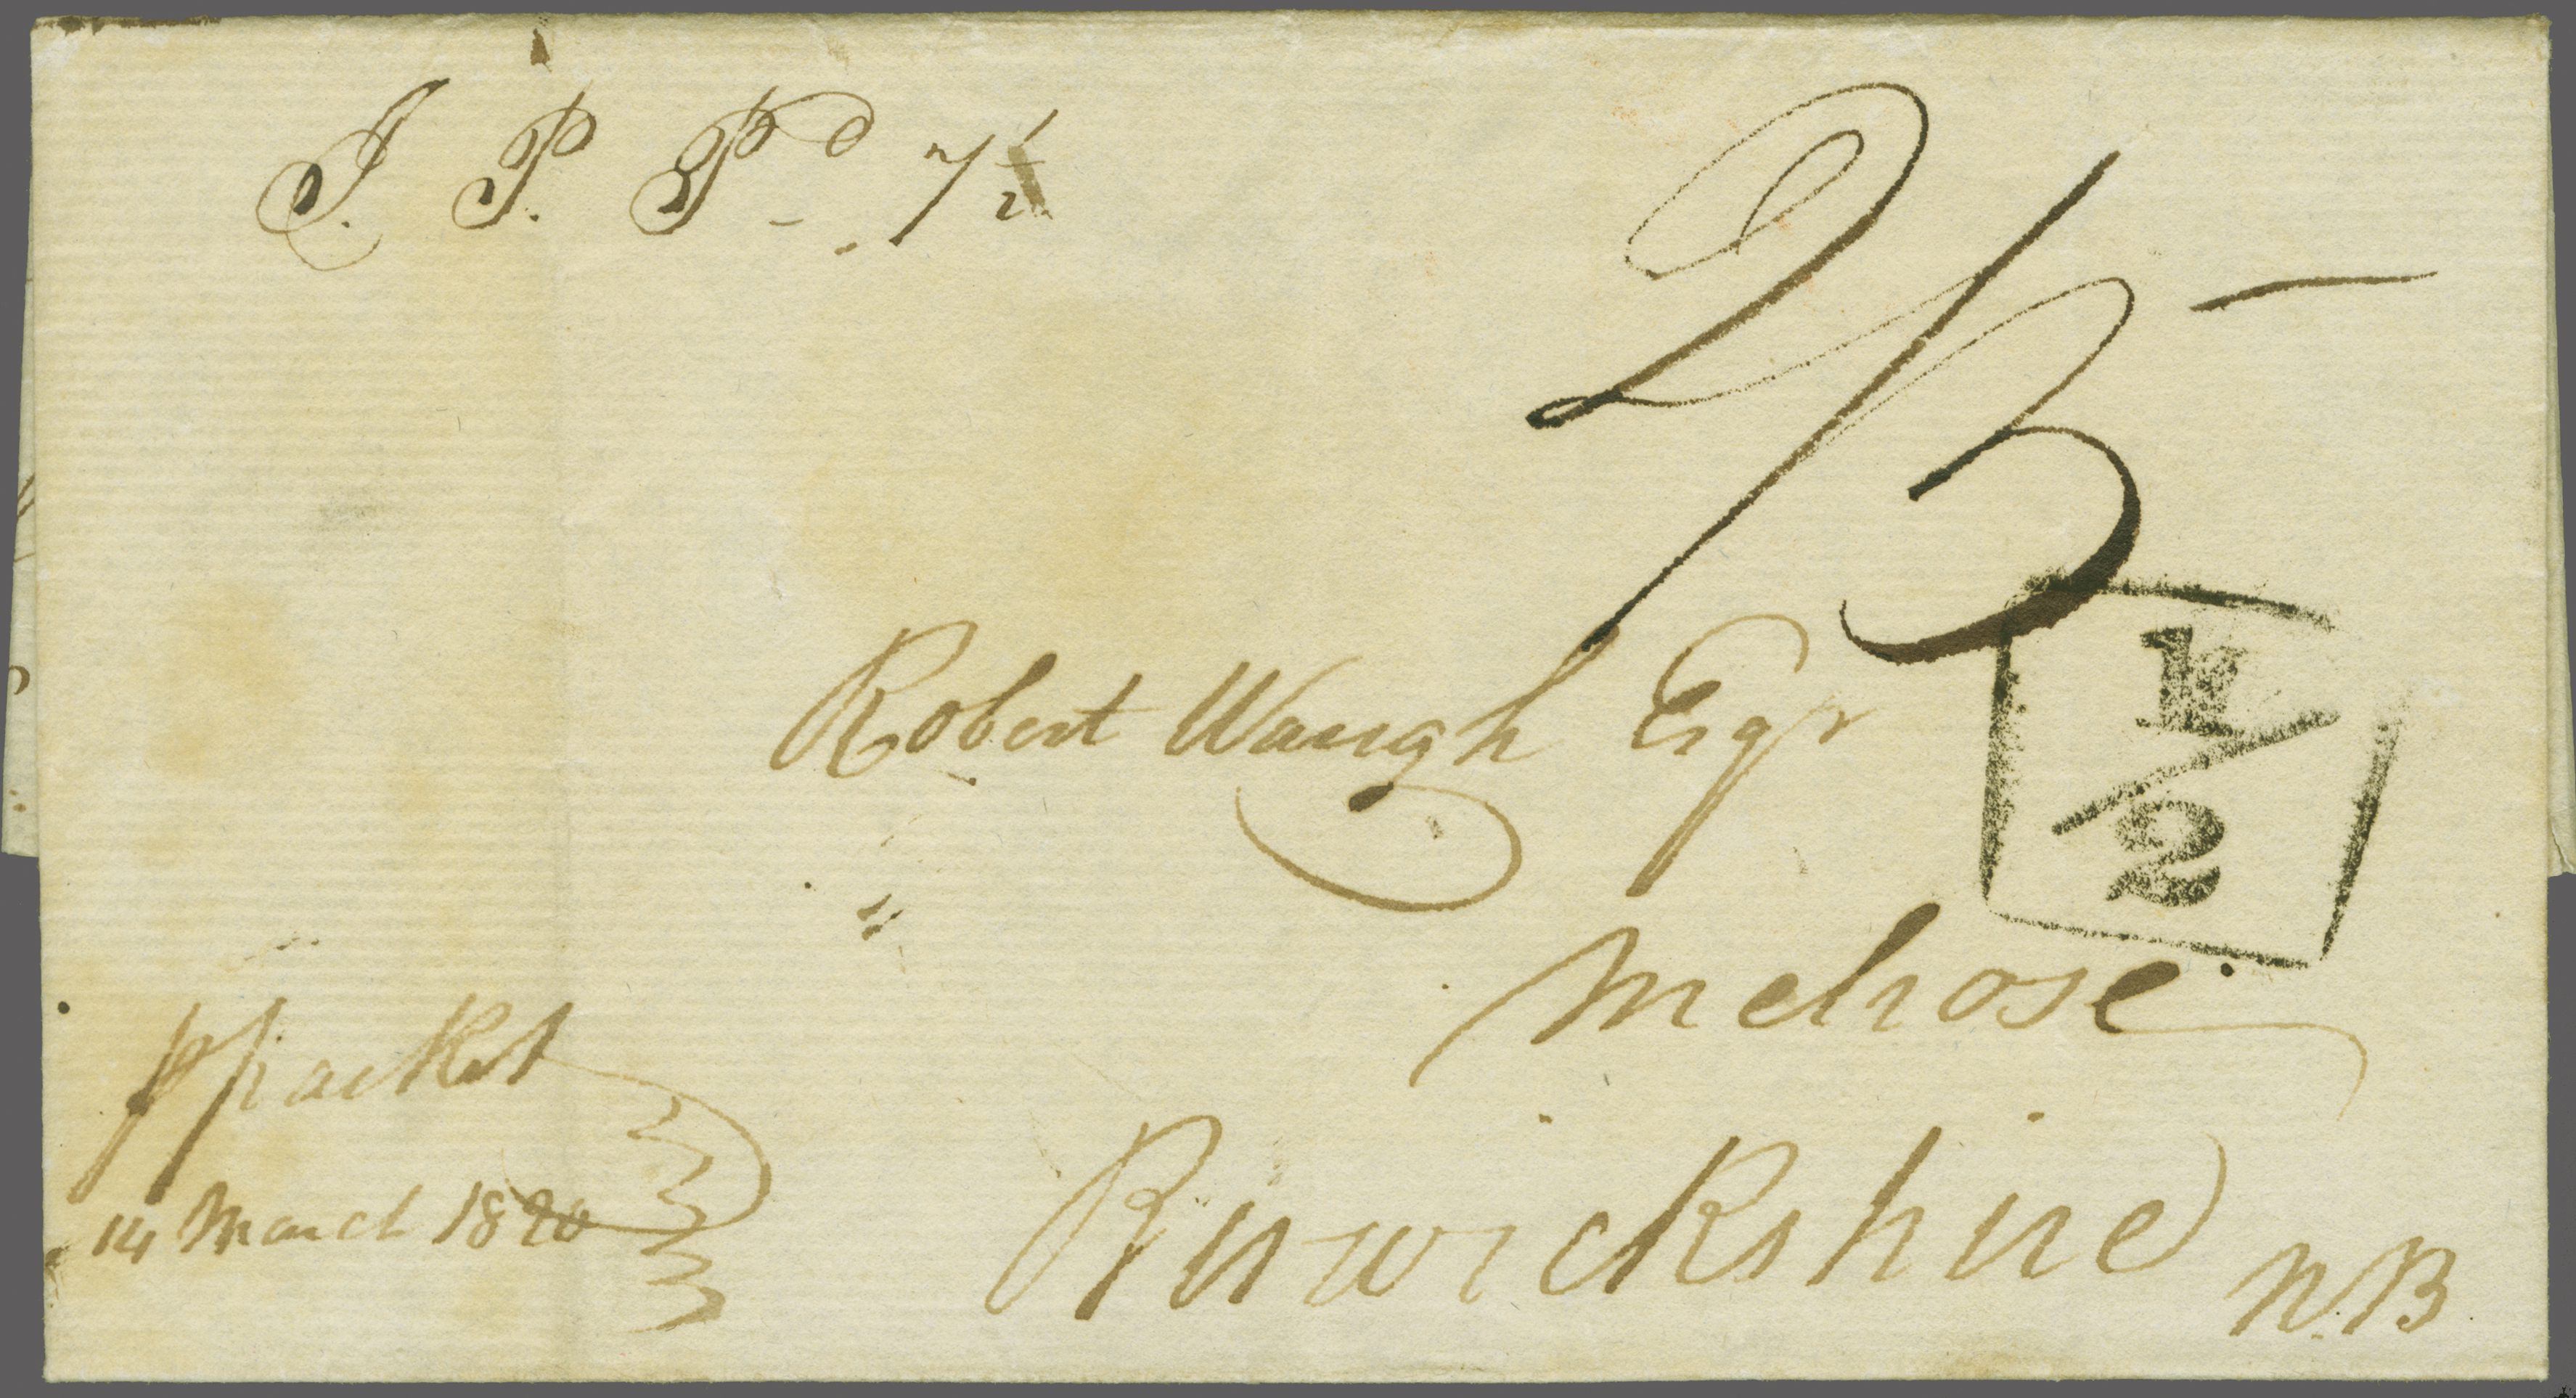 I. P. Pd 7½
2/5 –
Robert Waugh Esqr
1/2
Melrose
Berwickshire
N.B
p packet
14 March 1820